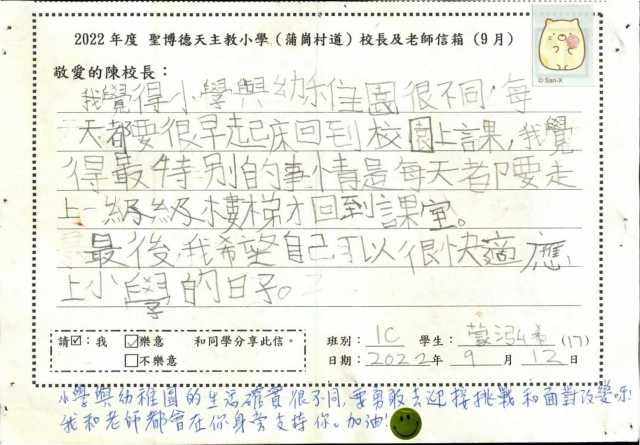 2022 年度 聖博德天主教小學（蒲崗村道）校長及老師信箱（9 月）
© San-X
敬愛的陳校長：
我覺得小學與幼稚園很不同，每
天都要很早起床回到校園上課，我覺
得最特別的事情是每天都要走
上一級級樓梯才回到課室。
最後，我希望自己可以很快適應
上小學的日子。
請☑：我 ☑樂意 和同學分享此信。
□不樂意
班別： 1C 學生： 希 (17)
日期： 2022 年 9 月 12 日
小學與幼稚園的生活確實很不同，要勇敢去迎接挑戰和面對改變呀!
我和老師都會在你身旁支持你。加油!